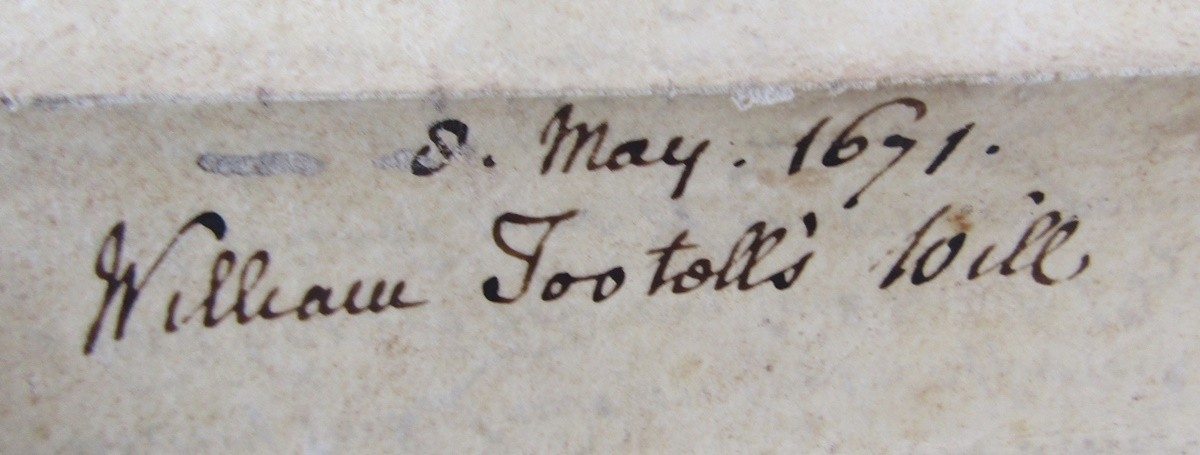 8. May. 1671.
William Tootell's Will